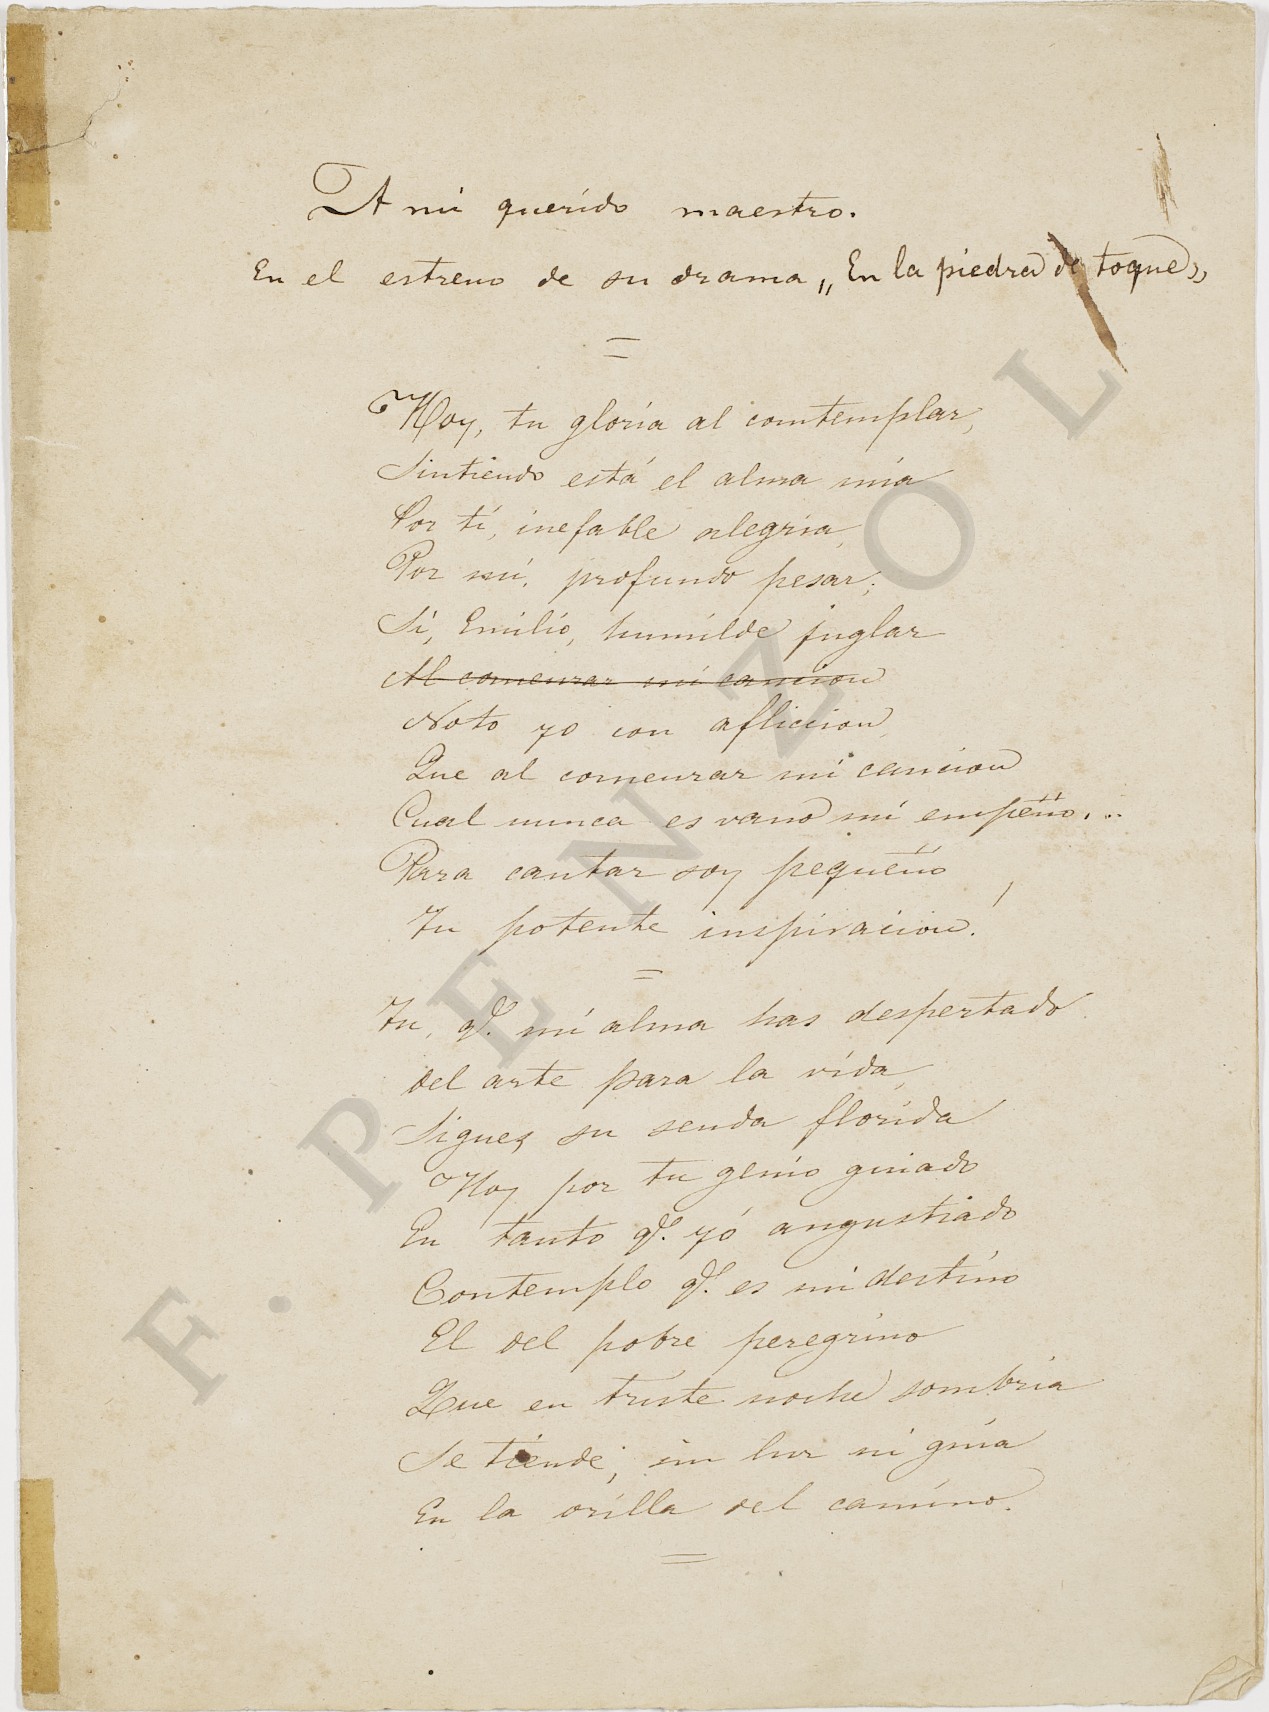 A mi querido maestro.
En el estreno de su drama „En la piedra de toque”
Hoy, tu gloria al comtemplar,
Sintiendo está el alma mia
Por tí, inefable alegria,
Por mí, profundo pesar;
Si, Emilio, humilde juglar
Al comenzar mi cancion
Noto yo con afliccion,
Que al comenzar mi cancion
Cual nunca es vano mi empeño...
Para cantar soy pequeño
Tu potente inspiracion!
Tu, q.e mi alma has despertado
del arte para la vida,
Sigues su senda florida
Hoy por tu genio guiado
En tanto q.e yó angustiado
Contemplo q.e es mi destino
El del pobre peregrino
Que en triste noche sombria
Se tiende, sin luz ni guia
En la orilla del camino.
F. PENZOL